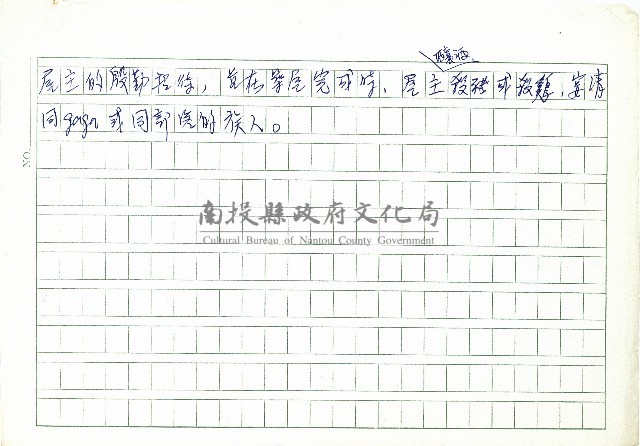 釀酒
屋主的殷勤招待，並在築屋完成時，屋主殺豬或殺雞，宴請
同gaga或同部落的族人。
NO.
南投縣政府文化局
Cultural Bureau of Nantou County Government